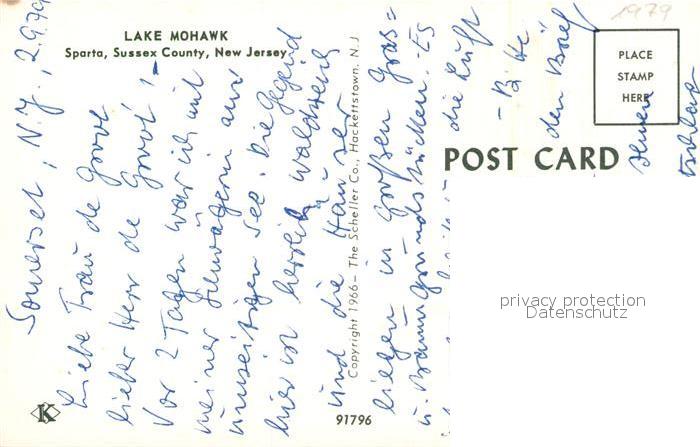 LAKE MOHAWK
Sparta, Sussex County, New Jersey
1979
PLACE
STAMP
HERE
POST CARD
Somerset, N.J., 2.9.79
Liebe Frau de Groot
lieber Herr de Groot!
Vor 2 Tagen war ich mit
meiner Schwägerin am
umseitigen See. Die Gegend
hier ist herrlich waldreich
und die Häuser
liegen in großen Gras=
u. Baumgrundstücken. Es
die Luft
- Bitte
den Brief
Copyright 1966 - The Scheller Co., Hackettstown, N.J.
91796
K
privacy protection
Datenschutz